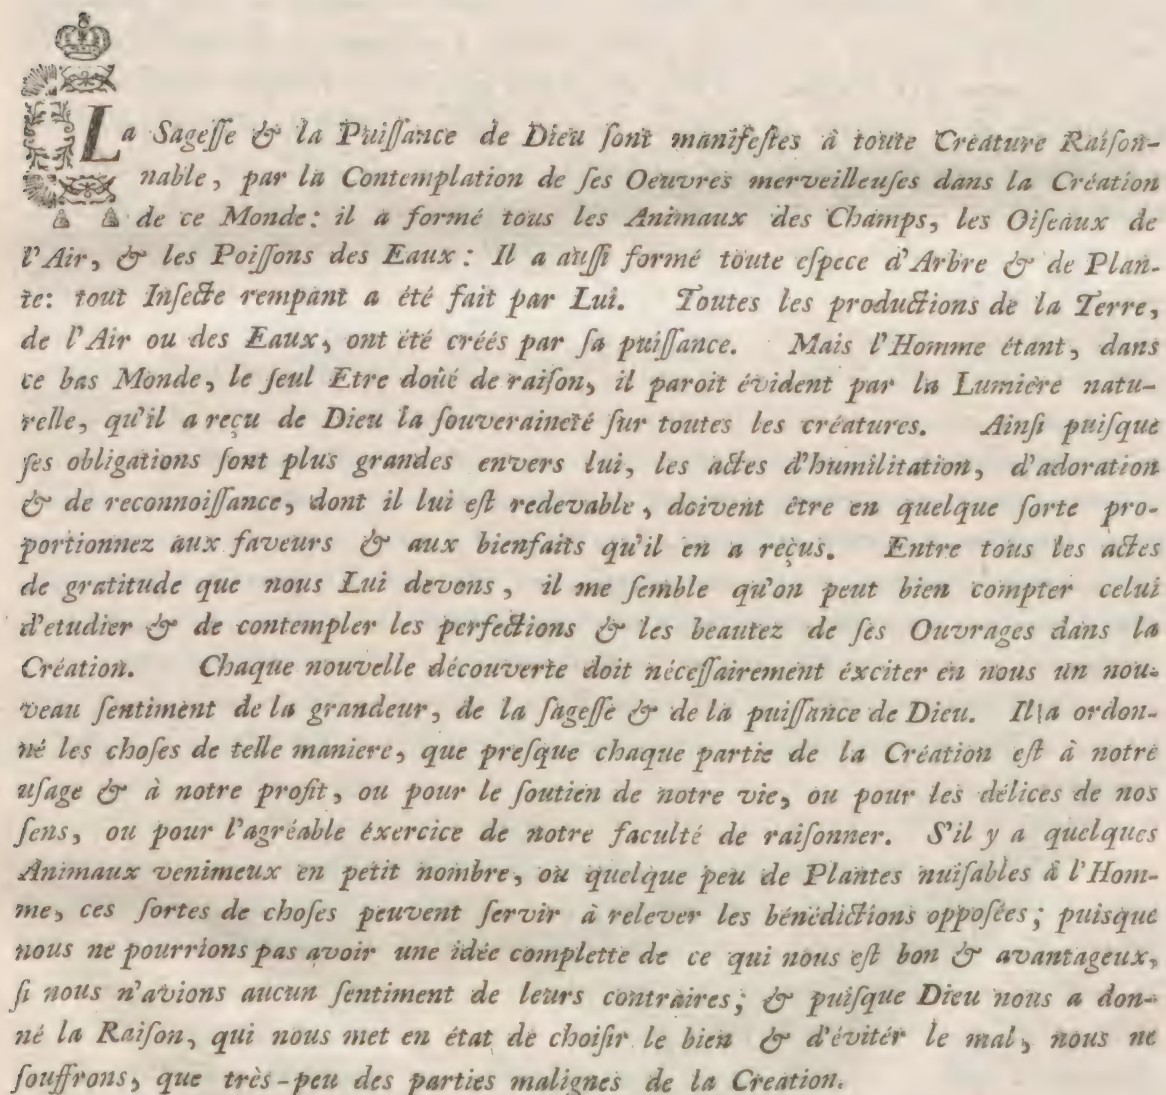 La Sageſſe & la Puiſſance de Dieu ſont manifeſtes à toute Créature Raiſon-
nable, par la Contemplation de ſes Oeuvres merveilleuſes dans la Création
de ce Monde: il a formé tous les Animaux des Champs, les Oiſeaux de
l'Air, & les Poiſſons des Eaux: Il a auſſi formé toute eſpece d'Arbre & de Plan-
te: tout Inſecte rempant a été fait par Lui. Toutes les productions de la Terre,
de l'Air ou des Eaux, ont été créés par ſa puiſſance. Mais l'Homme étant, dans
ce bas Monde, le ſeul Etre doüé de raiſon, il paroit évident par la Lumière natu-
relle, qu'il a reçu de Dieu la ſouveraineté ſur toutes les créatures. Ainſi puiſque
ſes obligations ſont plus grandes envers lui, les actes d'humilitation, d'adoration
& de reconnoiſſance, dont il lui eſt redevable, doivent être en quelque ſorte pro-
portionnez aux faveurs & aux bienfaits qu'il en a reçus. Entre tous les actes
de gratitude que nous Lui devons, il me ſemble qu'on peut bien compter celui
d'etudier & de contempler les perfections & les beautez de ſes Ouvrages dans la
Création. Chaque nouvelle découverte doit néceſſairement éxciter en nous un nou-
veau ſentiment de la grandeur, de la ſageſſe & de la puiſſance de Dieu. Il a ordon-
né les choſes de telle maniere, que preſque chaque partie de la Création eſt à notre
uſage & à notre profit, ou pour le ſoutien de notre vie, ou pour les délices de nos
ſens, ou pour l'agréable éxercice de notre faculté de raiſonner. S'il y a quelques
Animaux venimeux en petit nombre, ou quelque peu de Plantes nuiſables à l'Hom-
me, ces ſortes de choſes peuvent ſervir à relever les bénédictions oppoſées; puisque
nous ne pourrions pas avoir une idée complette de ce qui nous eſt bon & avantageux,
ſi nous n'avions aucun ſentiment de leurs contraires; & puiſque Dieu nous a don-
né la Raiſon, qui nous met en état de choiſir le bien & d'évitér le mal, nous ne
ſouffrons, que très-peu des parties malignes de la Creation.